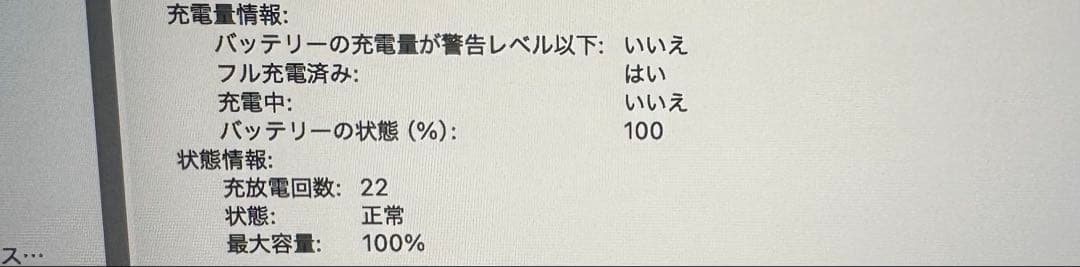 充電量情報:
バッテリーの充電量が警告レベル以下: いいえ
フル充電済み: はい
充電中: いいえ
バッテリーの状態 (%): 100
状態情報:
充放電回数: 22
状態: 正常
最大容量: 100%
ス…